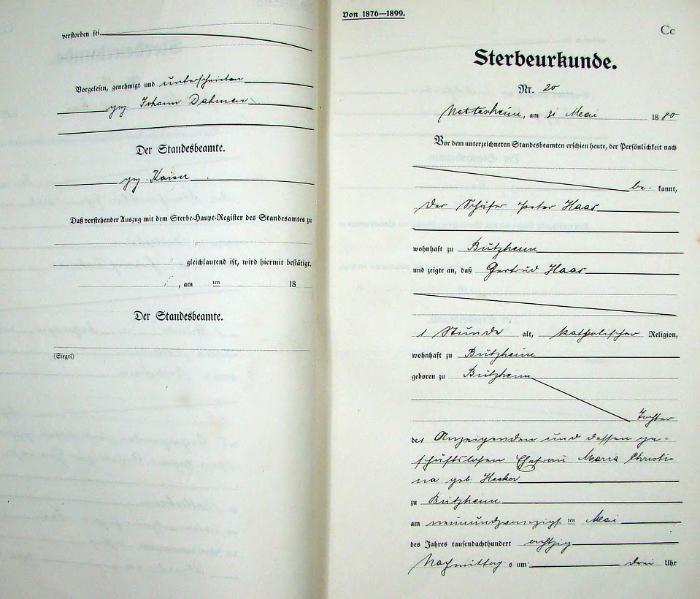 verstorben sei
Vorgelesen, genehmigt und unterschrieben
gez Johann Dahmen
Der Standesbeamte.
gez Kaiser
Daß vorstehender Auszug mit dem Sterbe-Haupt-Register des Standesamtes zu
gleichlautend ist, wird hiermit bestätigt.
, am ten 18
Der Standesbeamte.
(Siegel)
Von 1876—1899.
Cc
Sterbeurkunde.
Nr. 20
Nettesheim, am 31 Mai 1880
Vor dem unterzeichneten Standesbeamten erschien heute, der Persönlichkeit nach
be kannt,
der Schäfer Peter Haas
wohnhaft zu Butzheim
und zeigte an, daß Gertrud Haas
1 Stunde alt, katholischer Religion,
wohnhaft zu Butzheim
geboren zu Butzheim
Tochter
des Anzeigenden und dessen ge-
schäftslosen Ehefrau Maria Christi-
na geb
zu Butzheim
am neunundzwanzigs ten Mai
des Jahres tausendachthundert achtzig
Nachmittag s um drei Uhr